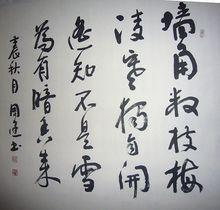 墙角数枝梅
凌寒獨自开
遥知不是雪
為有暗香来
秋月周书